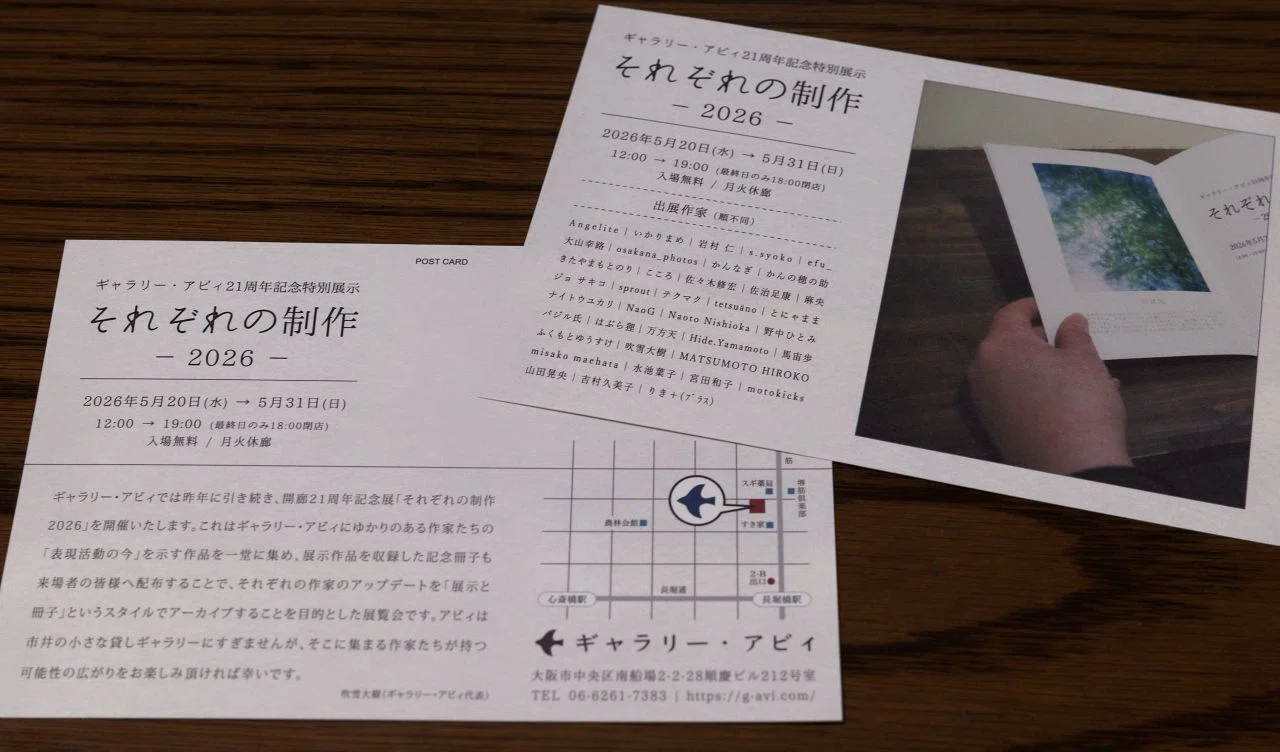 ギャラリー・アビィ21周年記念特別展示
それぞれの制作
― 2026 ―
2026年5月20日(水) → 5月31日(日)
12:00 → 19:00 (最終日のみ18:00閉店)
入場無料 / 月火休廊
出展作家 (順不同)
Angelite | いかりまめ | 岩村 仁 | s.syoko | efu_
大山幸路 | osakana_photos | かんなぎ | かんの穂の助
きたやまもとのり | こころ | 佐々木修宏 | 佐治足康 | 麻央
ジョ サキコ | sprout | テクマク | tetsuāno | とにゃまま
ナイトウユカリ | NaoG | Naoto Nishioka | 野中ひとみ
バジル氏 | はぶら狸 | 万方天 | Hide.Yamamoto | 馬宙歩
ふくもとゆうすけ | 吹雪大樹 | MATSUMOTO HIROKO
misako maehata | 水池葉子 | 宮田和子 | motokicks
山田晃央 | 吉村久美子 | りき+(プラス)
それぞれ
POST CARD
ギャラリー・アビィ21周年記念特別展示
それぞれの制作
― 2026 ―
2026年5月20日(水) → 5月31日(日)
12:00 → 19:00 (最終日のみ18:00閉店)
入場無料 / 月火休廊
ギャラリー・アビィでは昨年に引き続き、開廊21周年記念展「それぞれの制作
2026」を開催いたします。これはギャラリー・アビィにゆかりのある作家たちの
「表現活動の今」を示す作品を一堂に集め、展示作品を収録した記念冊子も
来場者の皆様へ配布することで、それぞれの作家のアップデートを「展示と
冊子」というスタイルでアーカイブすることを目的とした展覧会です。アビィは
市井の小さな貸しギャラリーにすぎませんが、そこに集まる作家たちが持つ
可能性の広がりをお楽しみ頂ければ幸いです。
吹雪大樹(ギャラリー・アビィ代表)
筋
スギ薬局
堺筋倶楽部
農林会館
すき家
2-B
出口
長堀通
心斎橋駅
長堀橋駅
ギャラリー・アビィ
大阪市中央区南船場2-2-28順慶ビル212号室
TEL 06-6261-7383 | https://g-avi.com/